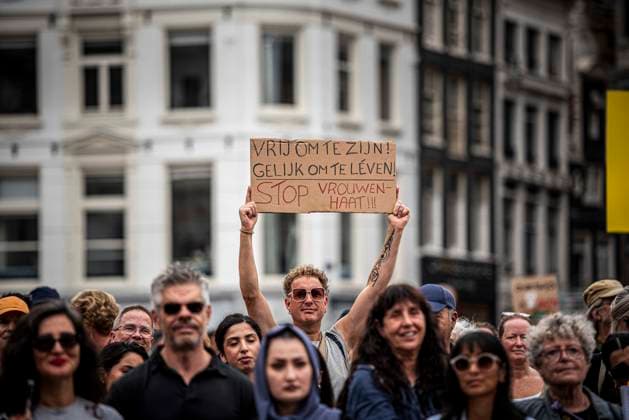 VRIJ OM TE ZIJN!
GELIJK OM TE LÉVEN!
STOP VROUWEN-
HAAT!!!